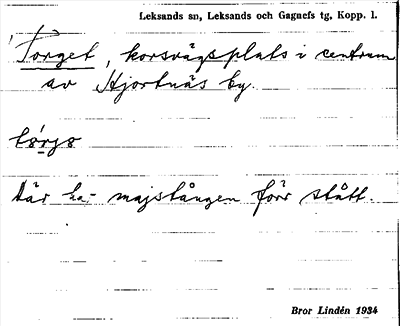 Leksands sn, Leksands och Gagnefs tg, Kopp. l.
'Torget, korsvägsplats i centrum
av Hjortnäs by.
Där ha majstången förr stått.
Bror Lindén 1934